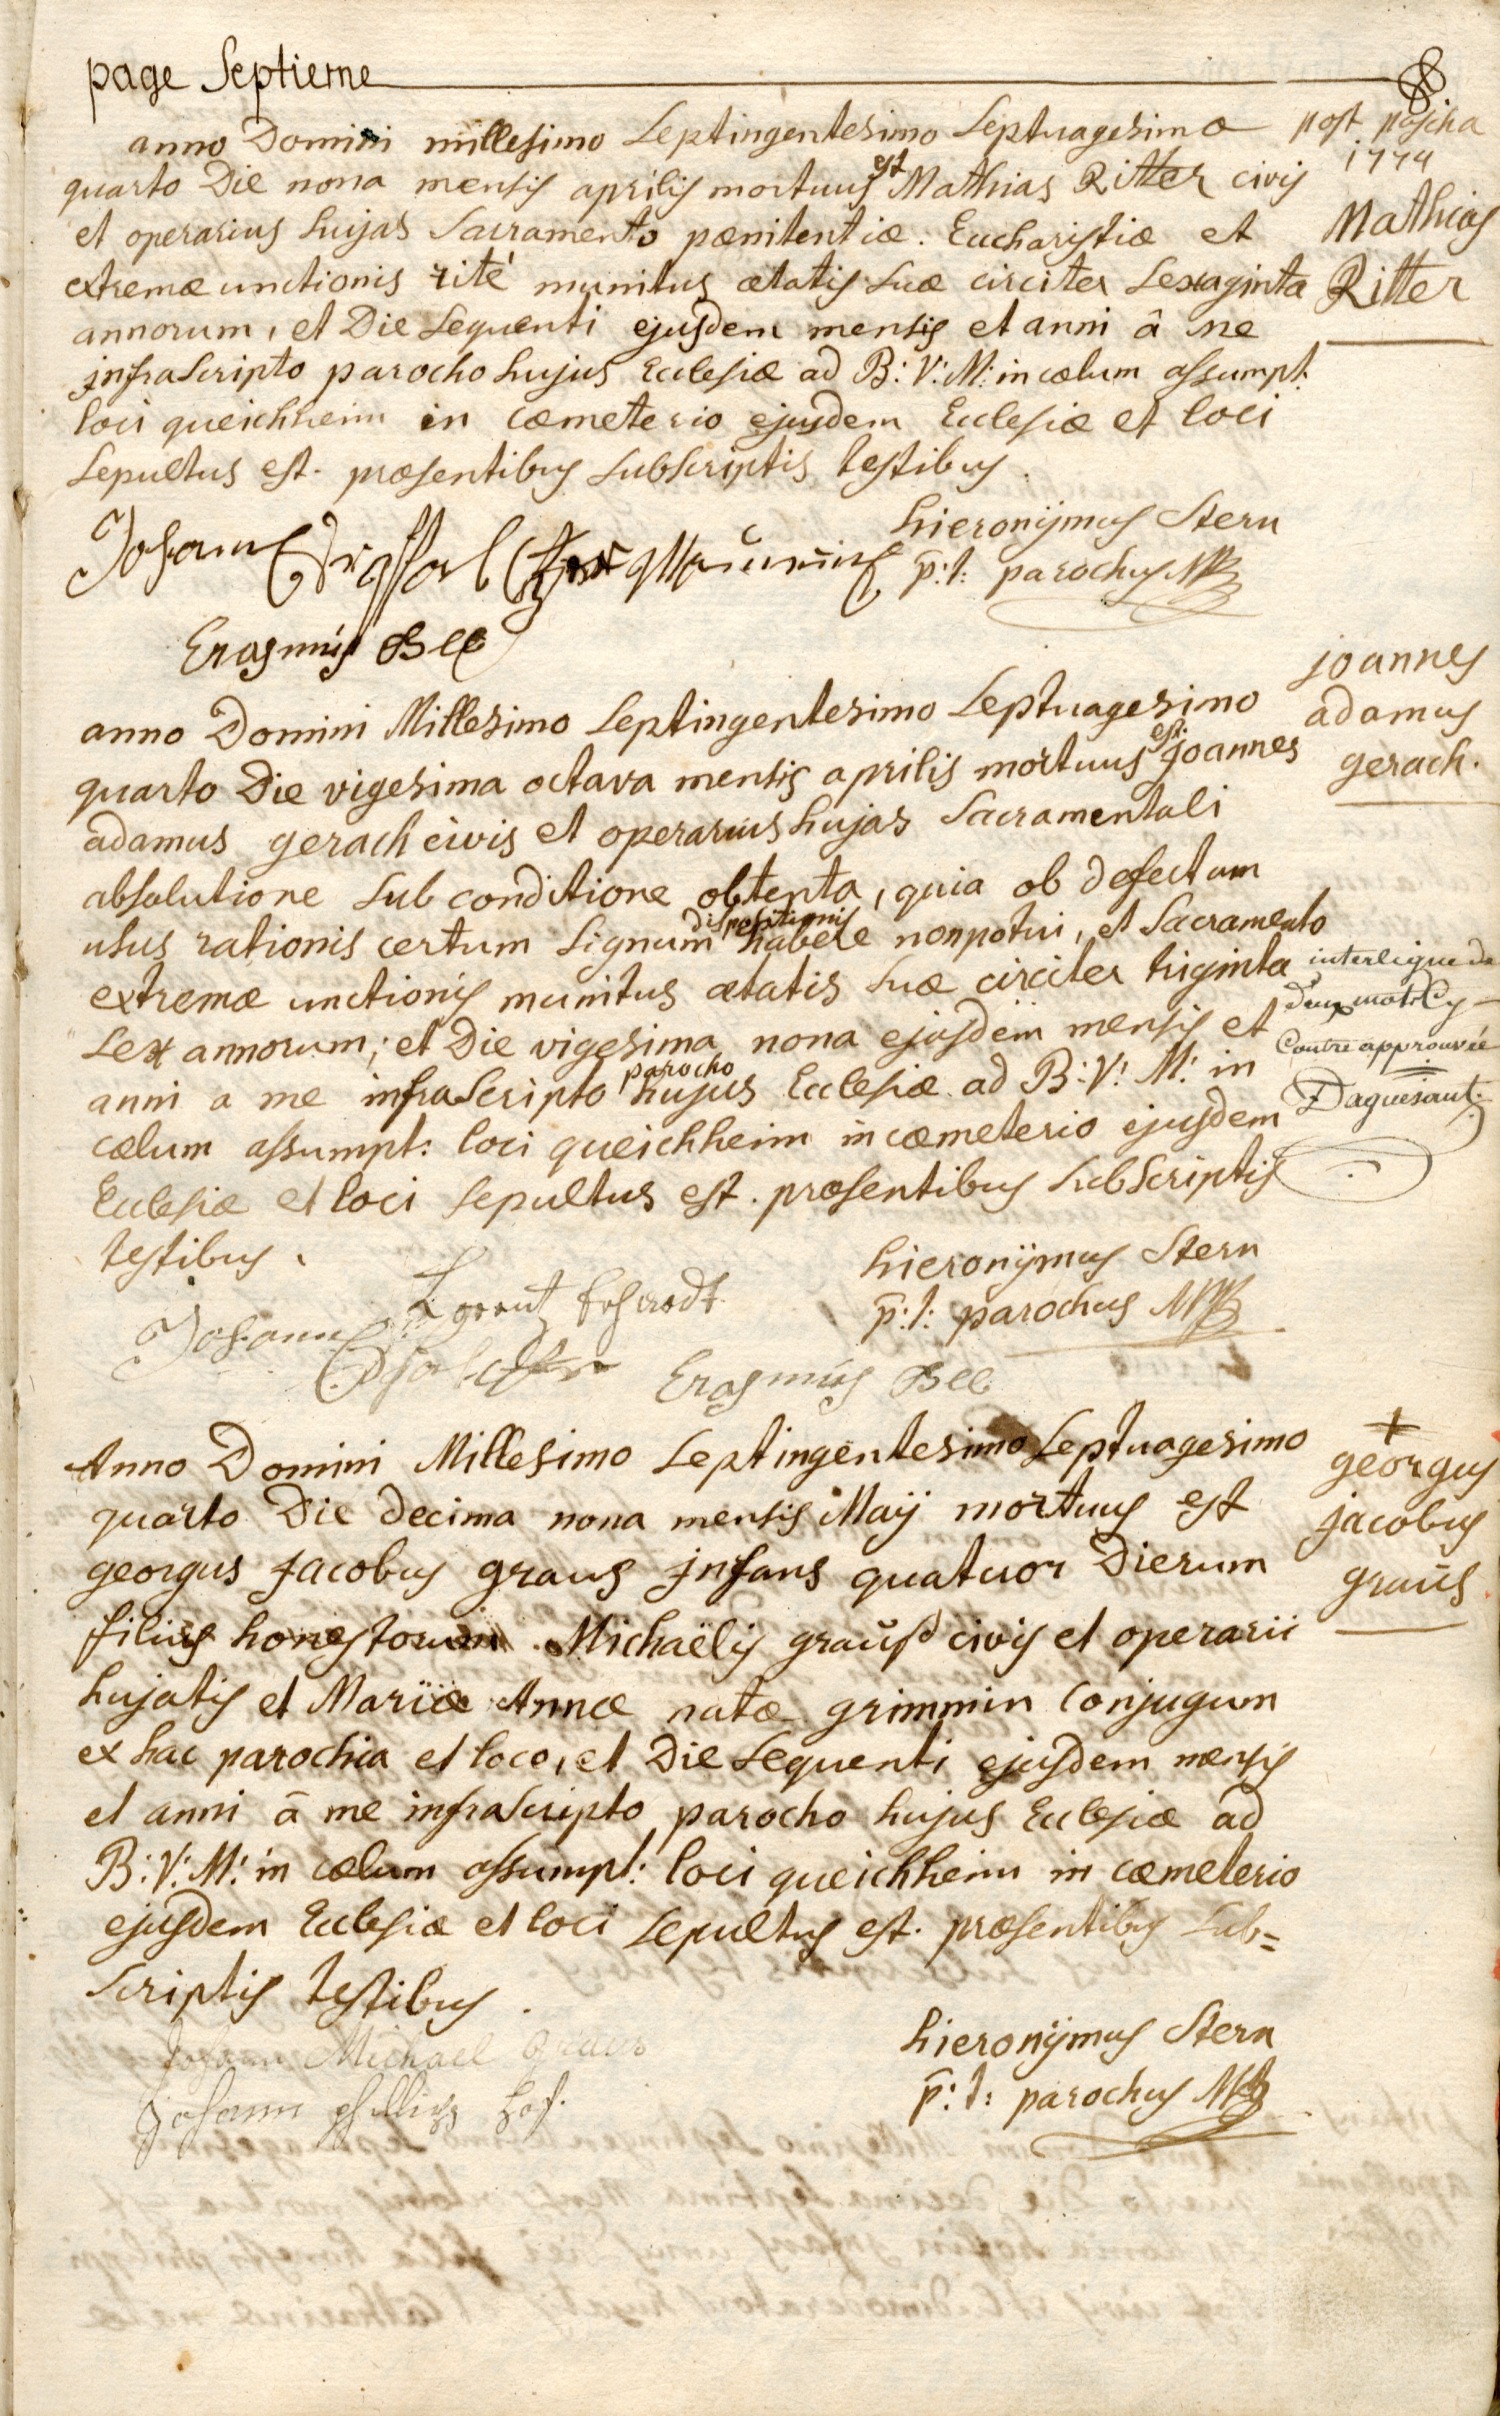 page Septieme
post pascha
1774
Mathias
Ritter
anno Domini millesimo Septingentesimo Septuagesimo
quarto Die nona mensis aprilis mortuus est Mathias Ritter civis
et operarius hujas Sacramento pœnitentiæ. Eucharistiæ et
extremæ unctionis rité munitus ætatis suæ circiter Sexaginta
annorum, et Die Sequenti ejusdem mensis et anni â me
jnfraScripto parocho hujus Ecclesiæ ad B: V: M: in cælum assumpt:
loci queichheim in cæmeterio ejusdem Ecclesiæ et loci
Sepultus est. præsentibus subscriptis testibus.
hieronÿmus Stern
p: t: parochus
Johann
Erasmus Bee
joannes
adamus
gerach.
anno Domini Millesimo Septingentesimo Septuagesimo
quarto Die vigesima octava mensis aprilis mortuus est joannes
adamus gerach civis et operarius hujas Sacramentali
absolutione sub conditione obtenta, quia ob defectum
usus rationis certum signum dispositionis habere non potui, et Sacramento
extremæ unctionis munitus ætatis suæ circiter triginta
Sex annorum; et Die vigesima nona ejusdem mensis et
anni a me infraScripto parocho hujus Ecclesiæ ad B: V: M: in
cælum assumpt: loci queichheim in cæmeterio ejusdem
Ecclesiæ et loci Sepultus est. præsentibus subScriptis
testibus.
interligne de
deux mots Cy
Contre approuvée
hieronÿmus Stern
p: t: parochus
Johann
Erasmus Bee
georgus
jacobus
graus
Anno Domini Millesimo Septingentesimo Septuagesimo
quarto Die decima nona mensis Maÿ mortuus est
georgus jacobus graus jnfans quatuor Dierum
filius honestorum Michaëlis graus civis et operarii
hujatis et Mariæ Annæ natæ grimmin conjugum
ex hac parochia et loco, et Die Sequenti ejusdem mensis
et anni â me infraScripto parocho hujus Ecclesiæ ad
B: V: M: in cælum assumpt: loci queichheim in cæmeterio
ejusdem Ecclesiæ et loci Sepultus est. præsentibus Sub=
Scriptis testibus.
hieronÿmus Stern
p: t: parochus
Johann Michael graus
Johann